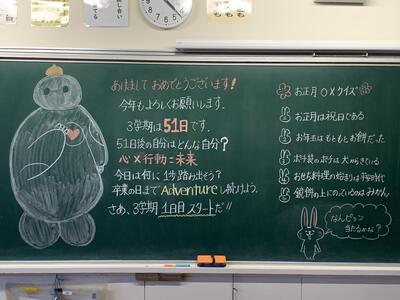 あけまして おめでとうございます!
今年もよろしくお願いします.
3学期は51日です.
51日後の自分はどんな自分?
心×行動=未来
今日は何に1歩踏み出そう?
卒業の日までAdventureし続けよう.
さぁ、3学期 1日目スタートだ!!
お正月○×クイズ
お正月は祝日である
お年玉はもともとお餅だった
ポチ袋のポチは犬からきている
おせち料理の始まりは平安時代
鏡餅の上にのっているのはみかん
なんピョン
当たるかな?